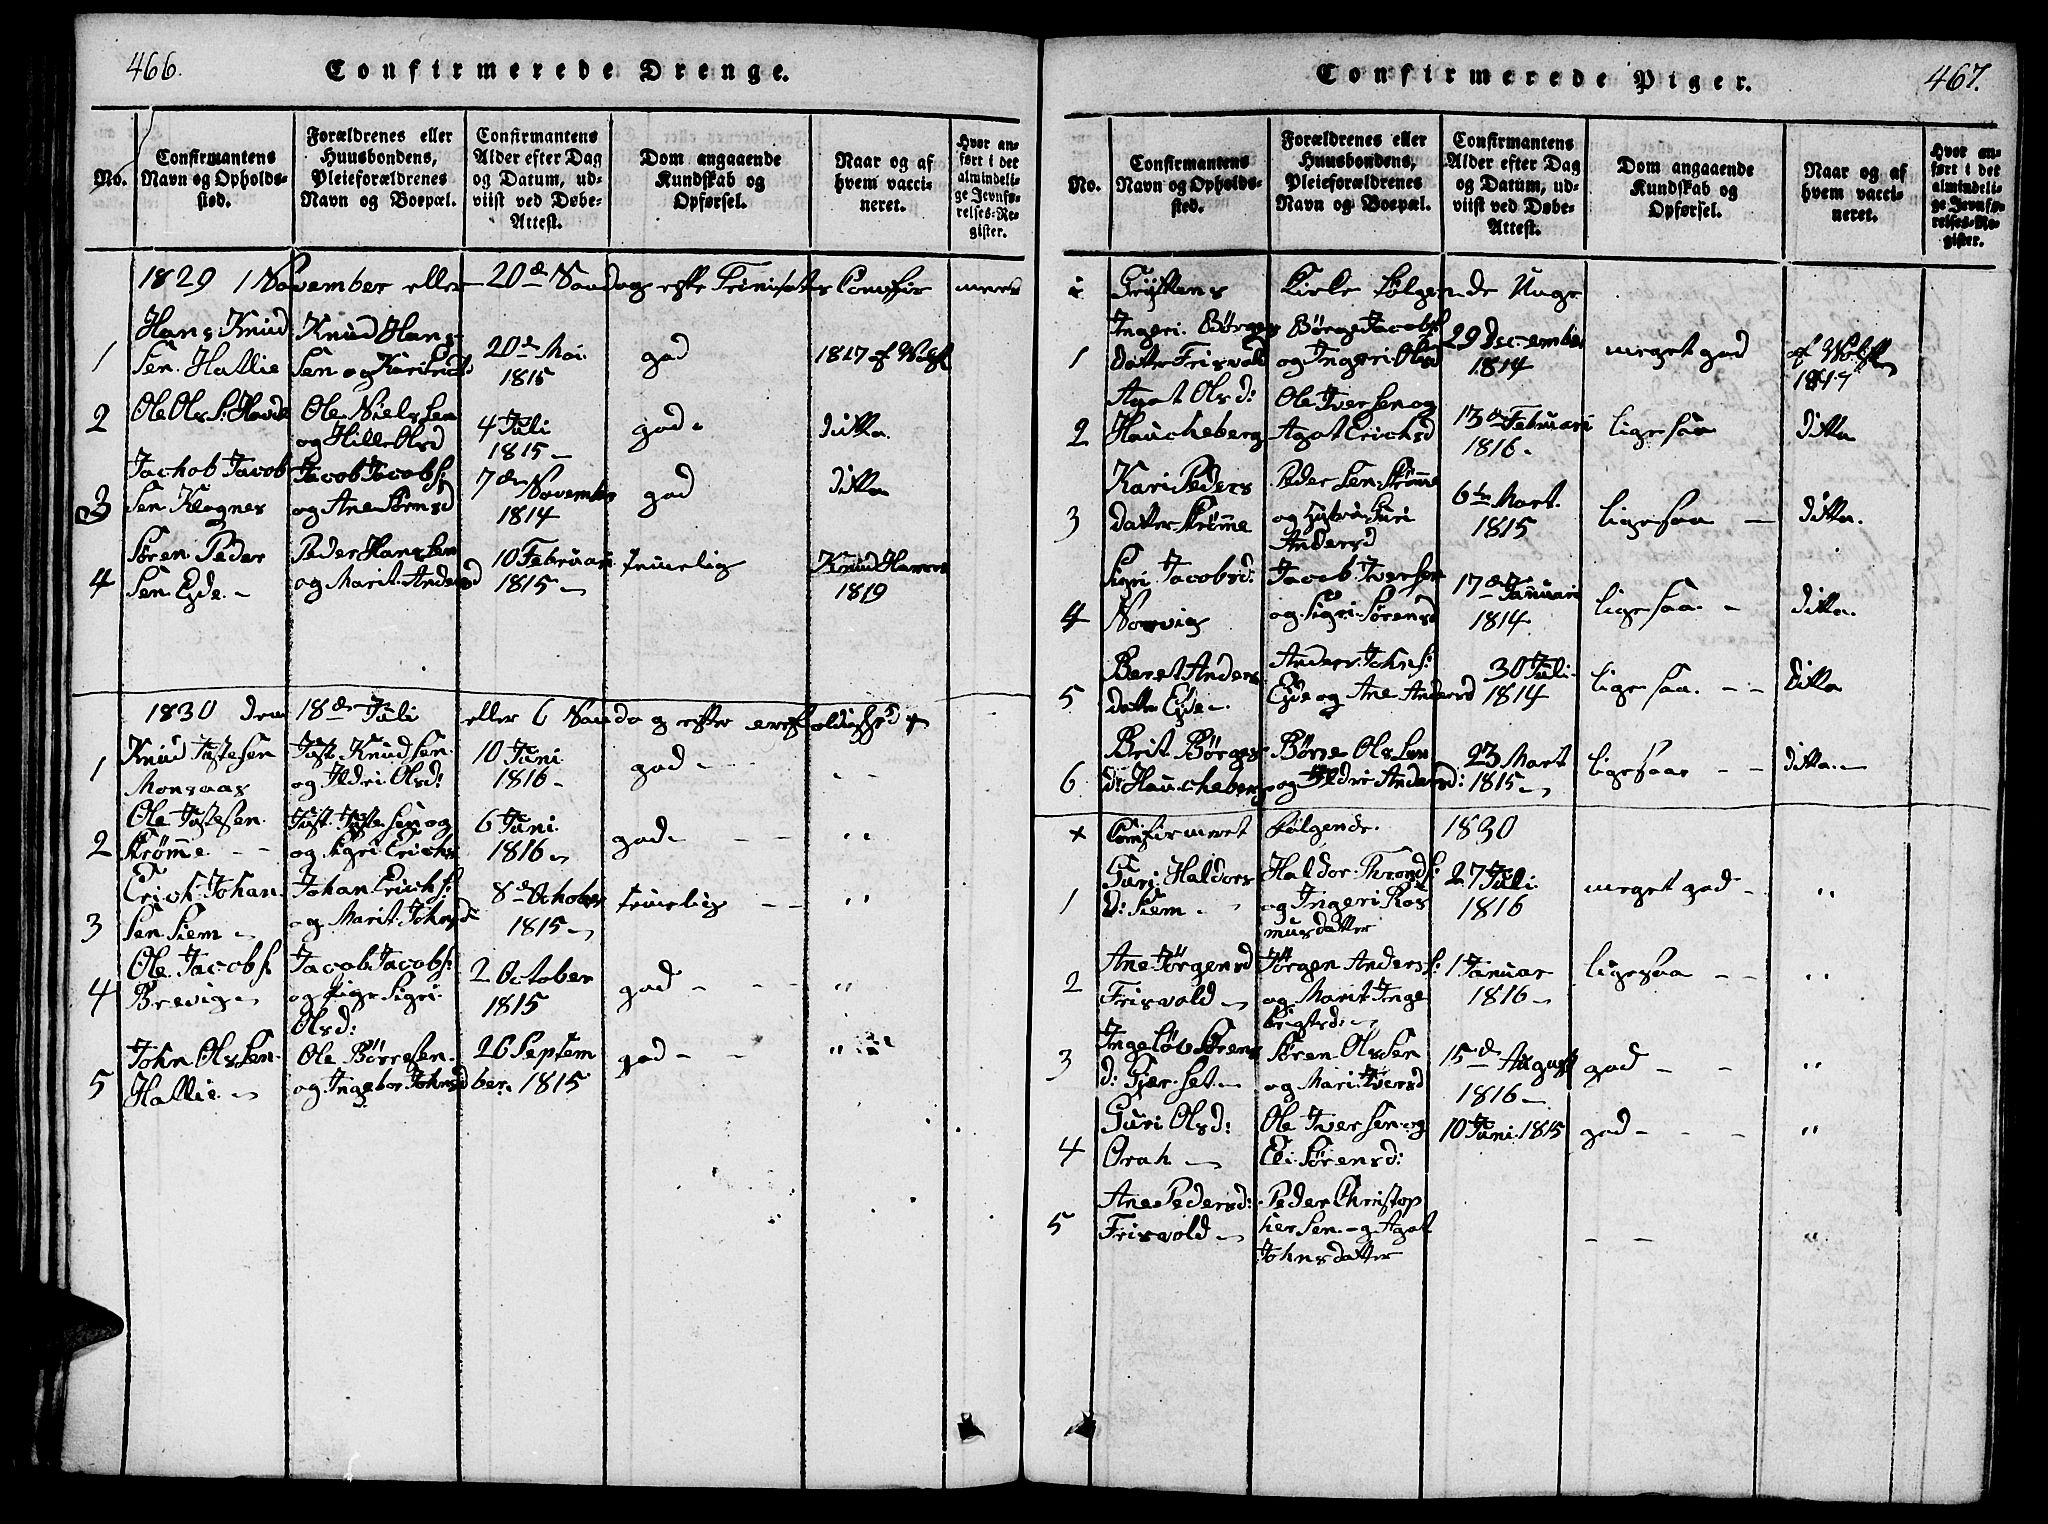 466.
Confirmerede Drenge.
No.
Confirmantens
Navn og Opholds-
sted.
Forældrenes eller
Huusbondens,
Pleieforældrenes
Navn og Boepæl.
Confirmantens
Alder efter Dag
og Datum, ud-
viist ved Døbe-
Attest.
Dom angaaende
Kundskab og
Opførsel.
Naar og af
hvem vacci-
neret.
Hvor an-
ført i det
almindeli-
ge Jevnfø-
relses-Re-
gister.
1829 1 November eller 20de Søndag efter Trinitatis Comfir meres
1
Hans Knud
Sen Hallie
Knud Hans
Sen og Kari
20de Mai
1815
god
1817 af
2
Ole Ols S:
Ole Nielssen
og Hille Olsd
4 Juli
1815 –
god
ditto
3
Jachob Jacob
Sen Klognes
Jacob Jacobs:
og Ane
7de November
1814
god
ditto
4
Søren Peder
Sen Eyde –
Peder Hanssen
og Marit Andersd
10 Februari
1815 –
temelig
Knud
1819
1830 den 18de Juli eller 6 Søndag efter
1
Knud Justesen
Monsaas
Just Knudsen
og Ildri Olsd:
10 Juni
1816 –
god –
2
Ole Justesen
Strømme – –
Just Justesen og
og Sigri Erichs
6 Juni
1816 –
god – – –
"
3
Erich Johan
Sen Siem –
Johan Erichs:
og Marit Johnsd:
8de October
1815 –
temelig – –
"
4
Ole Jacobs:
Brevig –
Jacob Jacobs:
og Pige Sigri
Olsd:
2 October
1815
god – – –
"
5
John Olssen
Hallie –
Ole Børresen
og Ingebor Johnsd
26 Septem
ber 1815
god – –
"
467.
Confirmerede Piger.
No.
Confirmantens
Navn og Opholds-
sted.
Forældrenes eller
Huusbondens,
Pleieforældrenes
Navn og Boepæl.
Confirmantens
Alder efter Dag
og Datum, ud-
viist ved Døbe-
Attest.
Dom angaaende
Kundskab og
Opførsel.
Naar og af
hvem vacci-
neret.
Hvor an-
ført i det
almindeli-
ge Jevnfø-
relses-Re-
gister.
i Kirke følgende Unge
1
Ingeri Børges
datter Frisvold
Børge Jacobs:
og Ingeri Olsd
29 December
1814
meget god
af
1817
2
Agat Olsd:
Haucheberg
Ole Iversen og
Agat Erichsd
13de Februari
1816 –
ligesaa
ditto
3
Kari Peders
datter Strømme
Peder Sen Strømme
og Guri
Andersd
6te Mart.
1815
ligesaa –
ditto.
4
Sigri Jacobsd:
Norvig
Jacob Iversen
og Sigri Sørensd
17de Januari
1814
ligesaa –
ditto.
5
Beret Anders
datter Eyde –
Anders Johns:
Eyde og Ane Andersd
30 Juli
1814
ligesaa – –
ditto
6
Brit Børges
d: Haucheberg
Børge Olssen
og Ildri Andersd:
23 Mart
1815 –
ligesaa – –
ditto –
x Comfirmeret Følgende 1830
1
Guri Haldors
d: Siem –
Haldor Thronds:
og Ingeri Ras
musdatter
27 Juli
1816
meget god –
"
2
Ane Jørgensd
Frisvold –
Jørgen Anderss:
og Marit Inge
brigtsd: –
1 Januar
1816 –
ligesaa – –
"
3
Ingeløv Sørens
d: Gjerset –
Søren Olssen
og Mari Iversd
15de August
1816 –
god – –
"
4
Guri Olsd:
Orah –
Ole Iversen og
Eli Sørensd:
10 Juni 1815
god – – –
"
5
Ane Pedersd:
Frisvold –
Peder Christop
hersen og Agat
Johnsdatter
– –
"